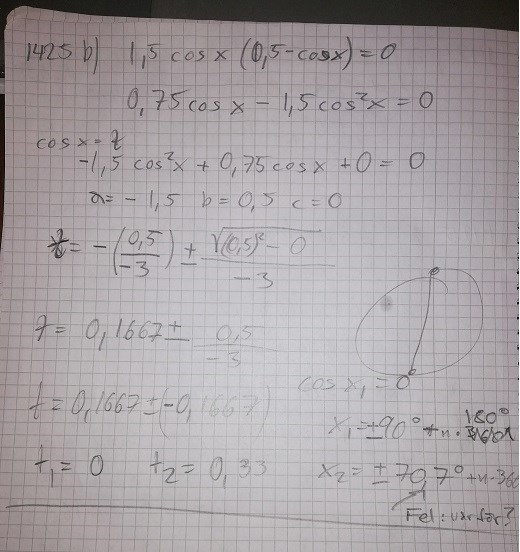 1425 b) 1,5 cos x (0,5 - cos x) = 0
0,75 cos x - 1,5 cos²x = 0
cos x = t
-1,5 cos²x + 0,75 cos x + 0 = 0
a = -1,5 b = 0,5 c = 0
t = -(0,5/-3) ± √((0,5)² - 0)/-3
t = 0,1667 ± 0,5/-3
t = 0,1667 ± (-0,1667)
t₁ = 0 t₂ = 0,33
cos x₁ = 0
x₁ = ±90° + n · 180°
x₂ = ±70,7° + n · 360
Fel: varför?